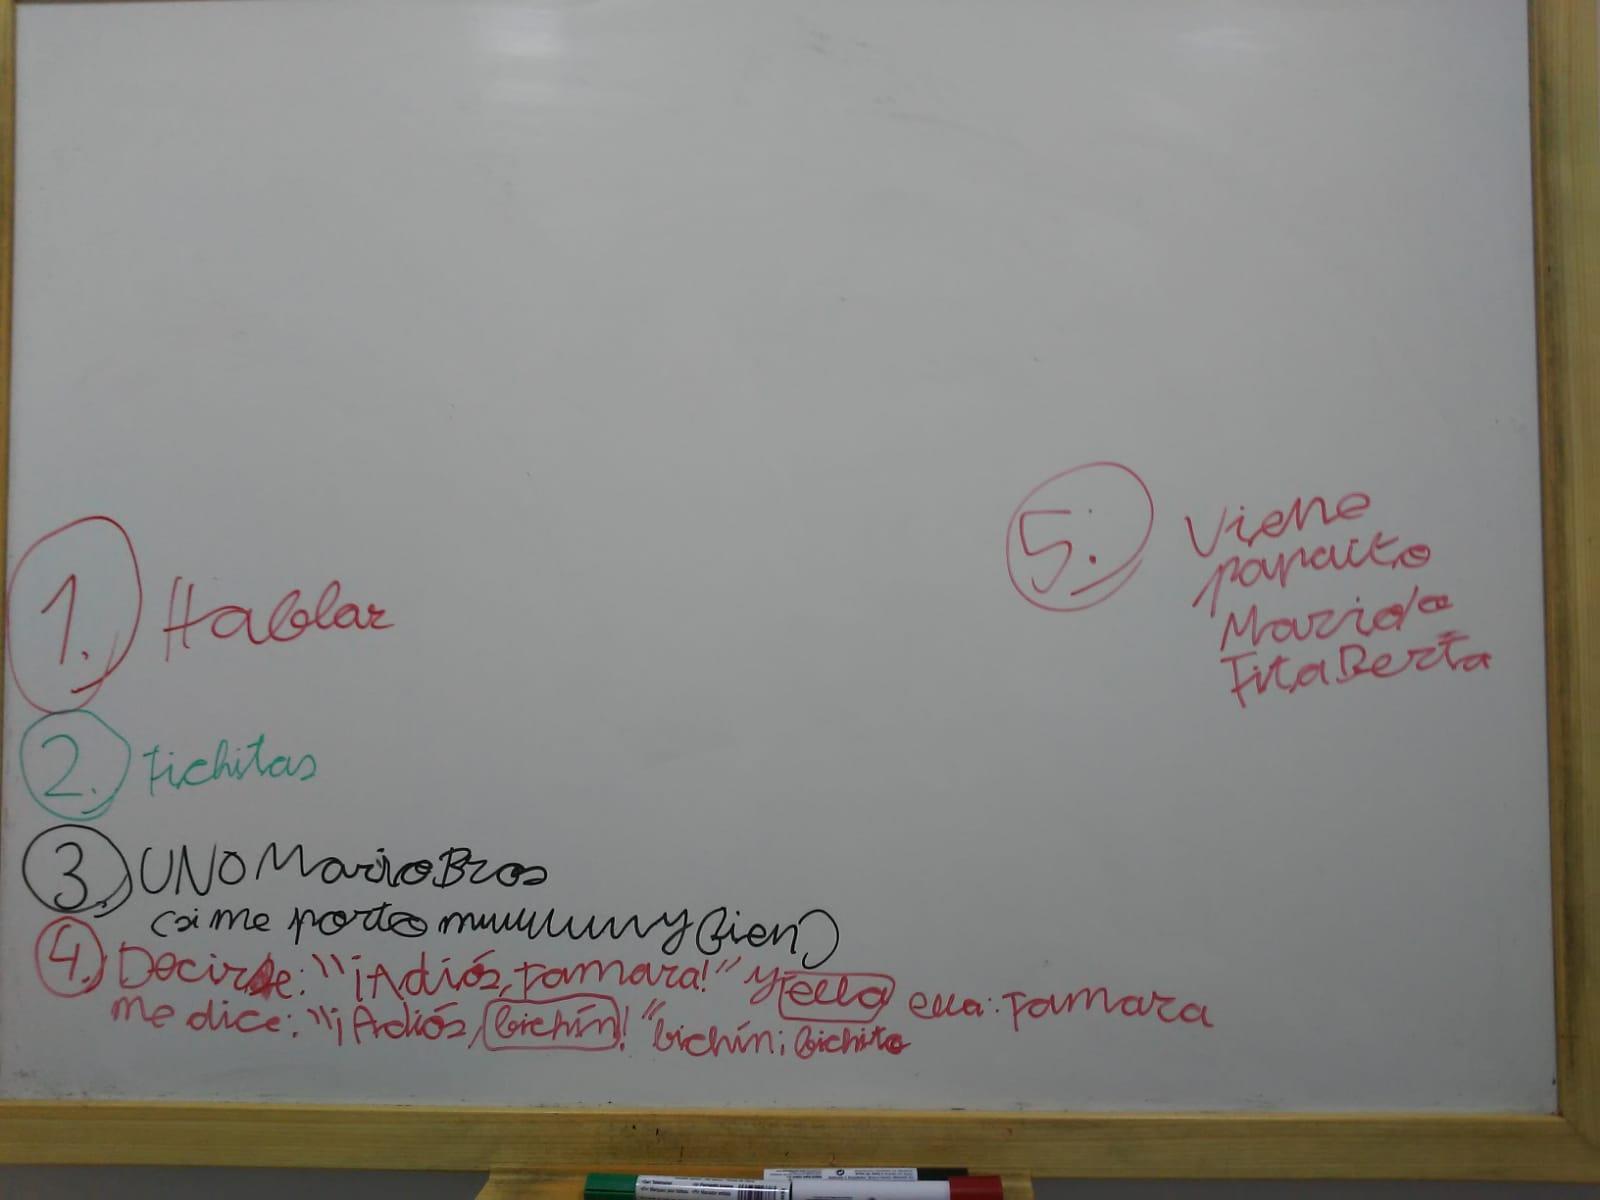 1. Hablar
2. Fichitas
3. UNO Mario Bros
(si me porto muuuuuuy bien)
4. Decirle: "¡Adiós, Tamara!" y ella ella: Tamara
me dice: "¡Adiós, bichín!" bichín; bichito
5. Viene
papaíto
Mario/a
Tita Berta